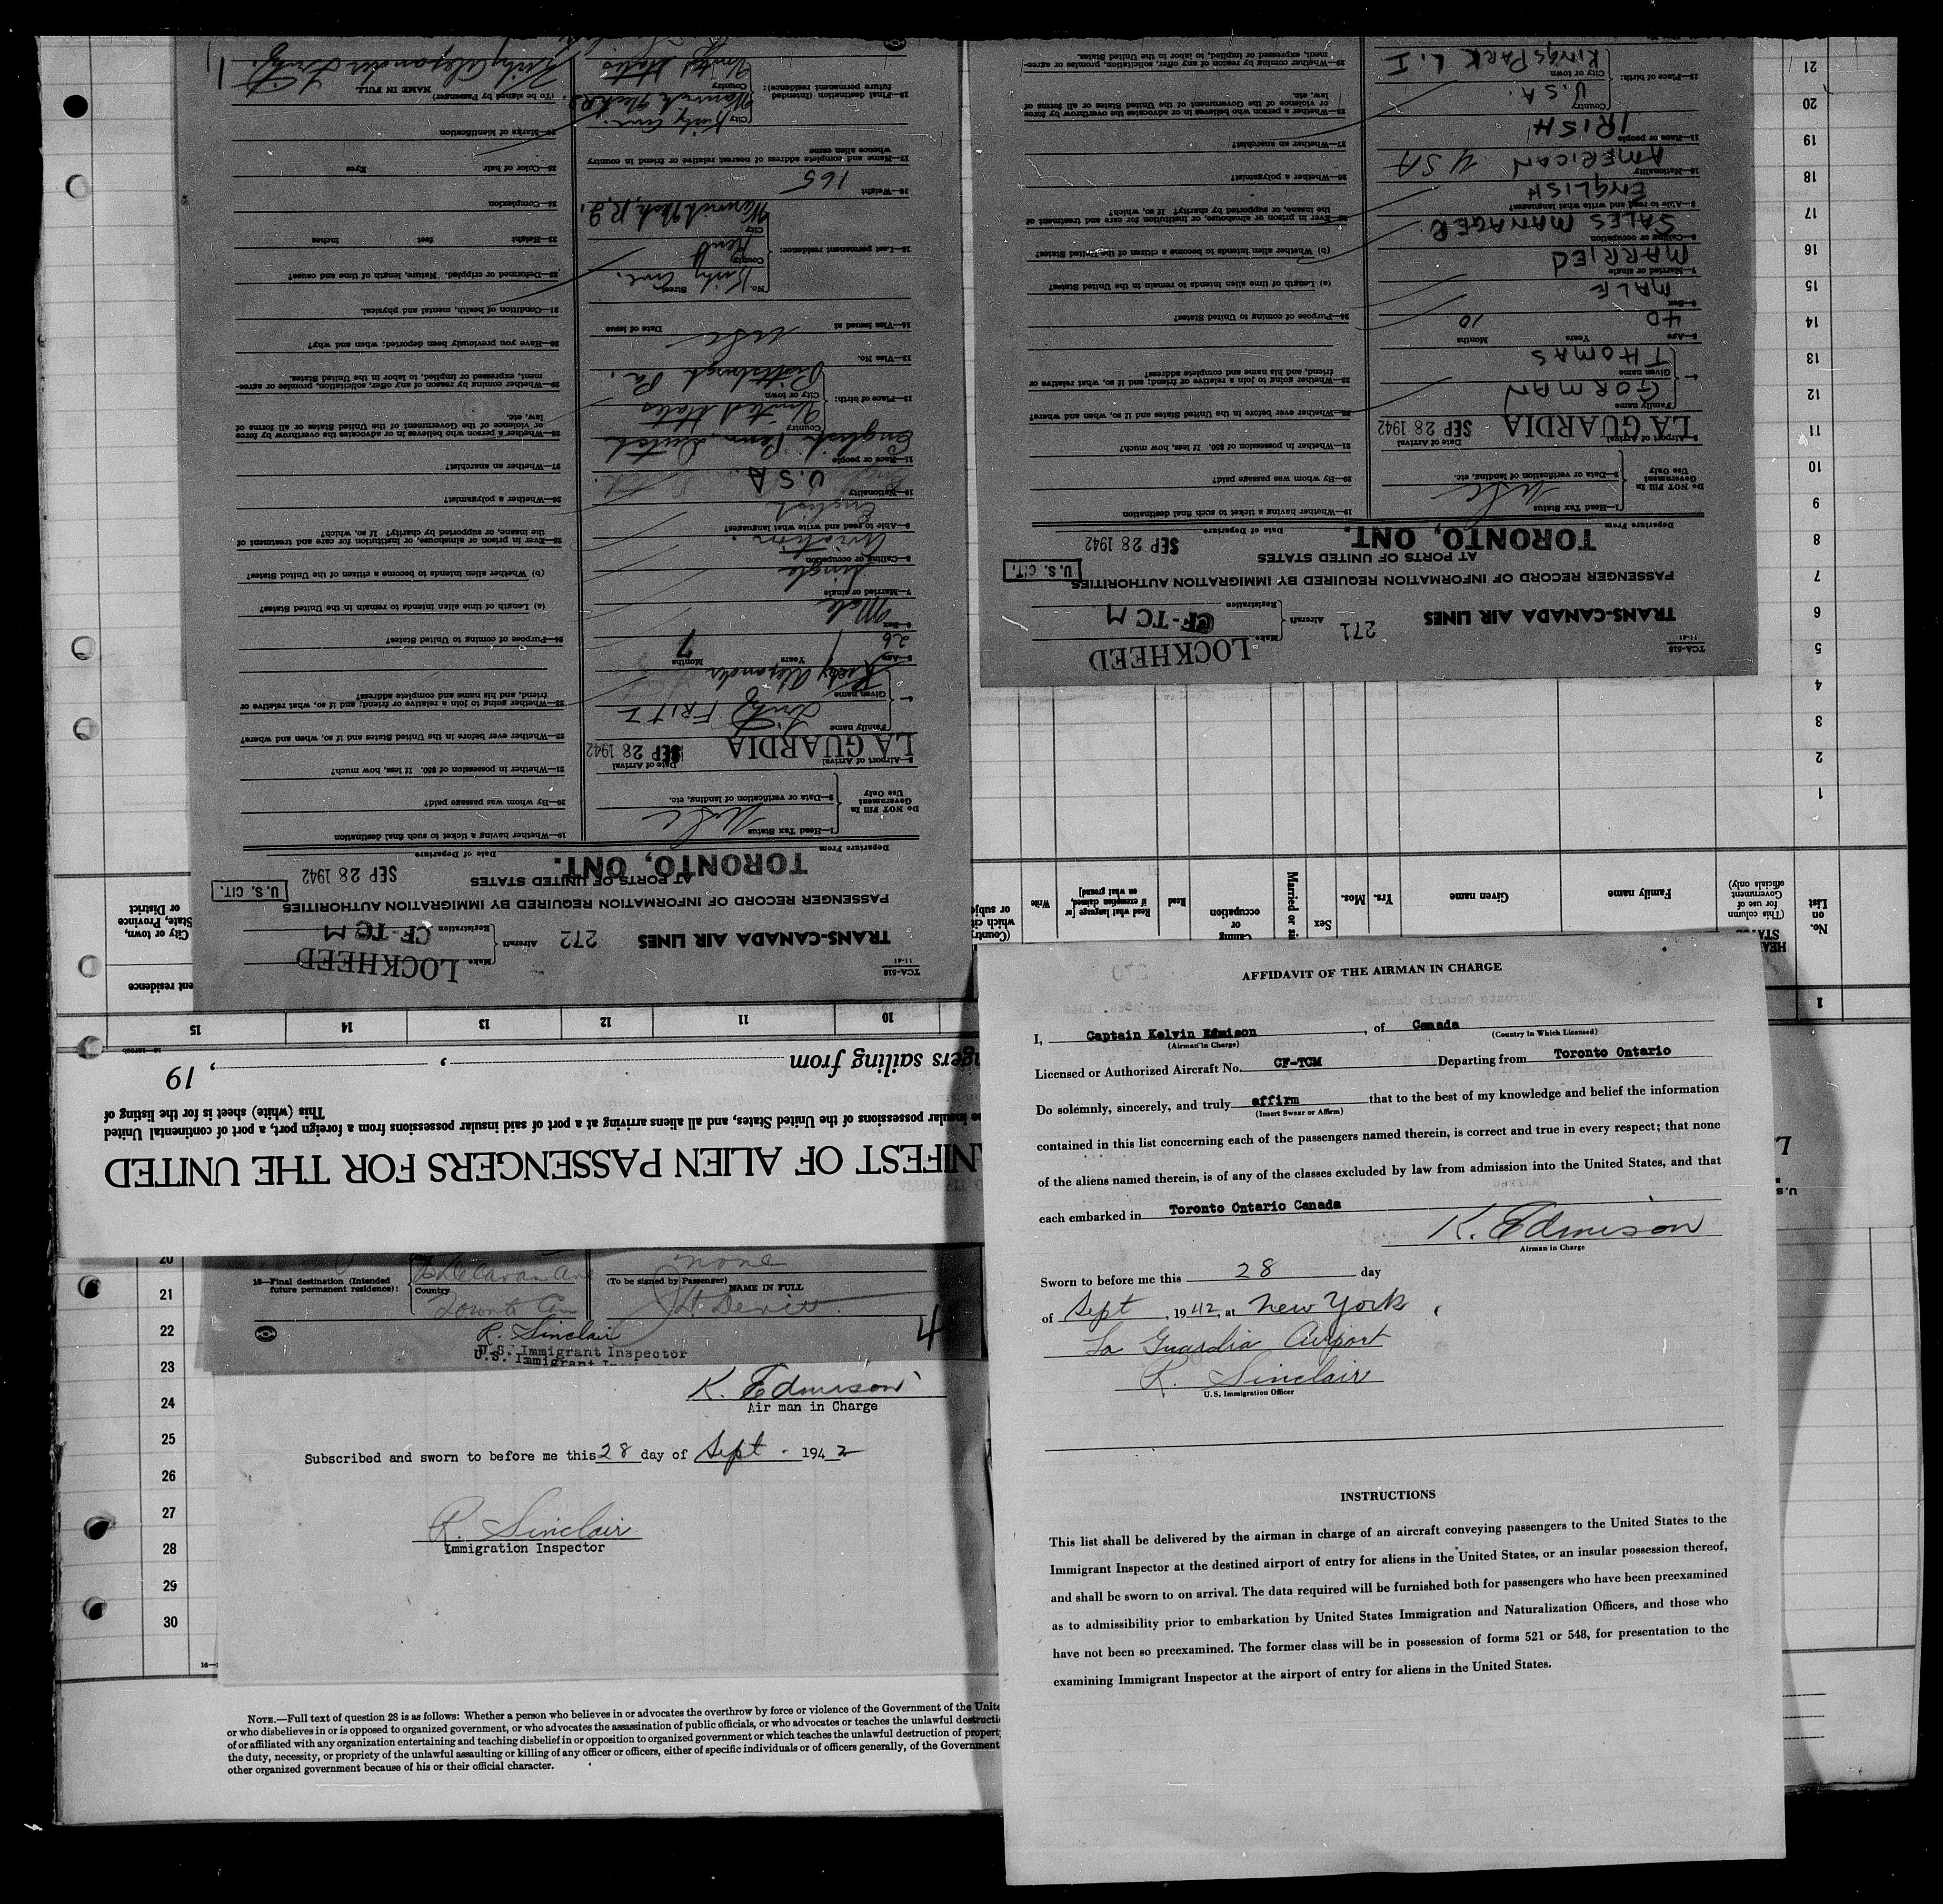 TCA-518
11-41
TRANS-CANADA AIR LINES 272 Aircraft
Make LOCKHEED
Registration CF-TCM
PASSENGER RECORD OF INFORMATION REQUIRED BY IMMIGRATION AUTHORITIES
AT PORTS OF UNITED STATES
U. S. CIT.
Departure From TORONTO, ONT. Date of Departure SEP 28 1942
Do NOT Fill In
Government
Use Only
1—Head Tax Status
2—Data or verification of landing, etc.
3—Airport of Arrival LA GUARDIA Date of Arrival SEP 28 1942
4— Family name Fritz FRITZ
Given name Alexander
5—Age 26 Years 7 Months
6—Sex Male
7—Married or single Single
8—Calling or occupation Aviation
9—Able to read and write what languages? English
10—Nationality U.S.A
11—Race or people English Penn. Dutch
12—Place of birth: Country United States
City or town Pittsburgh Pa.
13—Visa No.
14—Visa issued at Date of issue
15—Last permanent residence: No. Street Kirby Ave.
County Kent
City Warwick Neck, R.I.
16—Weight 165
17—Name and complete address of nearest relative or friend in country
whence alien came
18—Final destination (Intended
future permanent residence):
City Kirby Ave.
Warwick Neck R.I.
Country United States
19—Whether having a ticket to such final destination
20—By whom was passage paid?
21—Whether in possession of $50. If less, how much?
22—Whether ever before in the United States and if so, when and where?
23—Whether going to join a relative or friend; and if so, what relative or
friend, and his name and complete address?
24—Purpose of coming to United States?
(a) Length of time alien intends to remain in the United States?
(b) Whether alien intends to become a citizen of the United States?
25—Ever in prison or almshouse, or institution for care and treatment of
the insane, or supported by charity? If so, which?
26—Whether a polygamist?
27—Whether an anarchist?
28—Whether a person who believes in or advocates the overthrow by force
or violence of the Government of the United States or all forms of
law, etc.
29—Whether coming by reason of any offer, solicitation, promise or agree-
ment, expressed or implied, to labor in the United States.
30—Have you previously been deported; when and why?
31—Condition of health, mental and physical.
32—Deformed or crippled. Nature, length of time and cause?
33—Height feet inches
34—Complexion
35—Color of hair Eyes
36—Marks of identification
(To be signed by Passenger)
NAME IN FULL
Alexander Fritz.
TCA-518
11-41
TRANS-CANADA AIR LINES 271 Aircraft
Make LOCKHEED
Registration CF-TCM
PASSENGER RECORD OF INFORMATION REQUIRED BY IMMIGRATION AUTHORITIES
AT PORTS OF UNITED STATES
U. S. CIT.
Departure From TORONTO, ONT. Date of Departure SEP 28 1942
Do NOT Fill In
Government
Use Only
1—Head Tax Status
2—Data or verification of landing, etc.
3—Airport of Arrival LA GUARDIA Date of Arrival SEP 28 1942
4— Family name GORMAN
Given name THOMAS
5—Age 40 Years 10 Months
6—Sex MALE
7—Married or single MARRIED
8—Calling or occupation SALES MANAGER
9—Able to read and write what languages? ENGLISH
10—Nationality AMERICAN USA
11—Race or people IRISH
Country U.S.A.
12—Place of birth: City or town KINGS PARK L. I
19—Whether having a ticket to such final destination
20—By whom was passage paid?
21—Whether in possession of $50. If less, how much?
22—Whether ever before in the United States and if so, when and where?
23—Whether going to join a relative or friend; and if so, what relative or
friend, and his name and complete address?
24—Purpose of coming to United States?
(a) Length of time alien intends to remain in the United States?
(b) Whether alien intends to become a citizen of the United States?
25—Ever in prison or almshouse, or institution for care and treatment of
the insane, or supported by charity? If so, which?
26—Whether a polygamist?
27—Whether an anarchist?
28—Whether a person who believes in or advocates the overthrow by force
or violence of the Government of the United States or all forms of
law, etc.
29—Whether coming by reason of any offer, solicitation, promise or agree-
ment, expressed or implied, to labor in the United States.
NIFEST OF ALIEN PASSENGERS FOR THE UNITED
insular possessions of the United States, and all aliens arriving at a port of said insular possessions from a foreign port, a port of continental United
This (white) sheet is for the listing of
gers sailing from , , 19
10 11 12 13 14 15
No.
on
List
(This column
for use of
Government
officials only)
Family name
Given name
Yrs.
Mos.
Sex
Married or si
Calling
or
occupation
Read
Read what language [or
if exemption claimed,
on what ground]
Write
(Country
which cit
or subje
ent residence
City or town,
State, Province
or District
1
2
3
4
5
6
7
8
9
10
11
12
13
14
15
16
17
18
19
20
21
20
21
22
23
24
25
26
27
28
29
30
18—Final destination (Intended
future permanent residence):
Country
Toronto Can
none
(To be signed by Passenger)
NAME IN FULL
J H. Devitt.
R. Sinclair
U.S. Immigrant Inspector
U.S. Immigrant
4
K. Edmison
Air man in Charge
Subscribed and sworn to before me this 28 day of Sept. 1942
R. Sinclair
Immigration Inspector
NOTE.—Full text of question 28 is as follows: Whether a person who believes in or advocates the overthrow by force or violence of the Government of the Unite
or who disbelieves in or is opposed to organized government, or who advocates the assassination of public officials, or who advocates or teaches the unlawful destructi
of or affiliated with any organization entertaining and teaching disbelief in or opposition to organized government or which teaches the unlawful destruction of propert
the duty, necessity, or propriety of the unlawful assaulting or killing of any officer or officers, either of specific individuals or of officers generally, of the Government
other organized government because of his or their official character.
AFFIDAVIT OF THE AIRMAN IN CHARGE
I, Captain Kelvin Edmison, of Canada
(Airman in Charge) (Country in Which Licensed)
Licensed or Authorized Aircraft No. CF-TCM Departing from Toronto Ontario
Do solemnly, sincerely, and truly affirm that to the best of my knowledge and belief the information
(Insert Swear or Affirm)
contained in this list concerning each of the passengers named therein, is correct and true in every respect; that none
of the aliens named therein, is of any of the classes excluded by law from admission into the United States, and that
each embarked in Toronto Ontario Canada
K. Edmison
Airman in Charge
Sworn to before me this 28 day
of Sept, 1942, at New York,
La Guardia Airport
R. Sinclair
U.S. Immigration Officer
INSTRUCTIONS
This list shall be delivered by the airman in charge of an aircraft conveying passengers to the United States to the
Immigrant Inspector at the destined airport of entry for aliens in the United States, or an insular possession thereof,
and shall be sworn to on arrival. The data required will be furnished both for passengers who have been preexamined
as to admissibility prior to embarkation by United States Immigration and Naturalization Officers, and those who
have not been so preexamined. The former class will be in possession of forms 521 or 548, for presentation to the
examining Immigrant Inspector at the airport of entry for aliens in the United States.